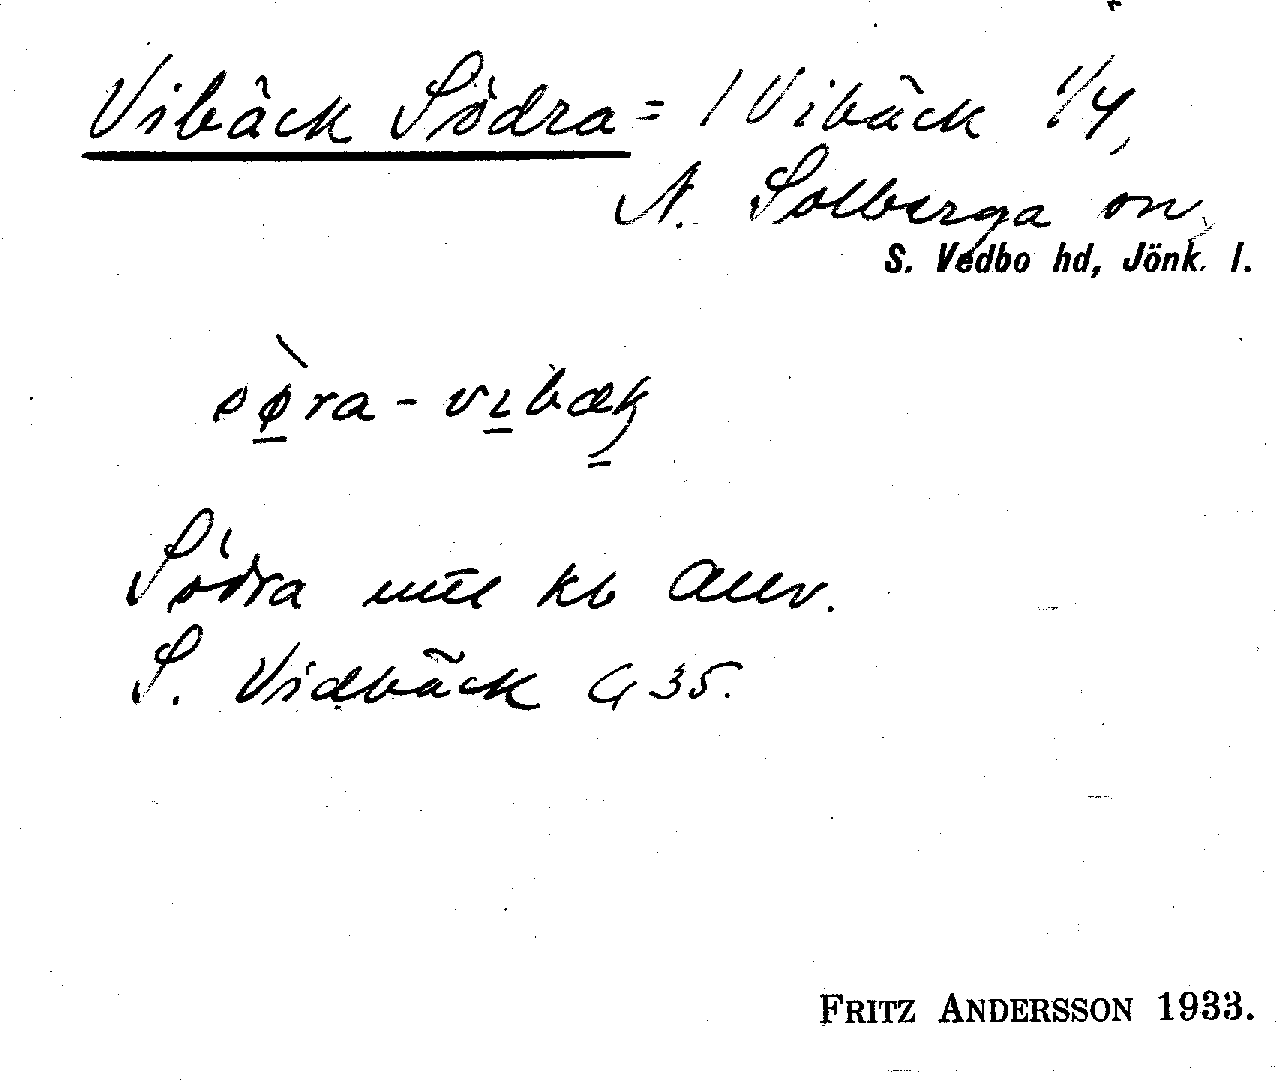 Vibäck Södra = 1 Vibäck 1/4,
N. Solberga sn,
S. Vedbo hd, Jönk. l.
sø̀ra - vibæk
Södra kb
S. Vidbäck G 35.
FRITZ ANDERSSON 1933.